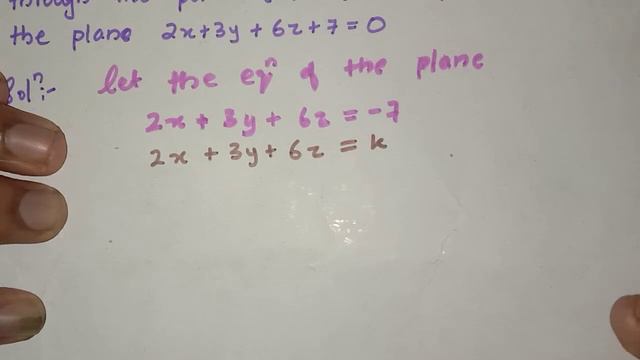 through the
the plane 2x+3y+6z+7=0
Sol?:- let the eqn of the plane
2x + 3y + 6z = -7
2x + 3y + 6z = k